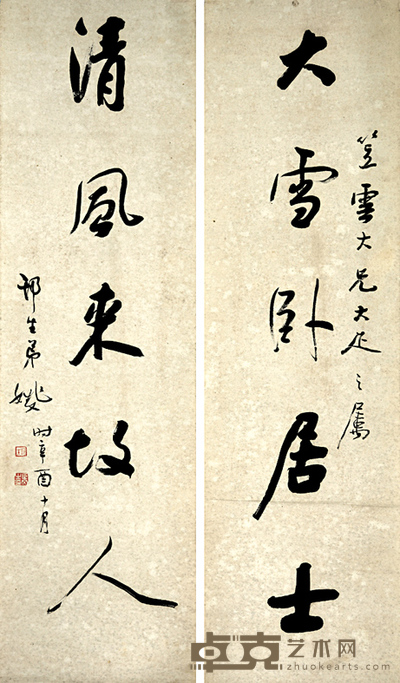 大雪卧居士
笠雲大兄大疋之屬
清風来故人
生弟
时辛酉十月
卓克艺术网
zhuokearts.com